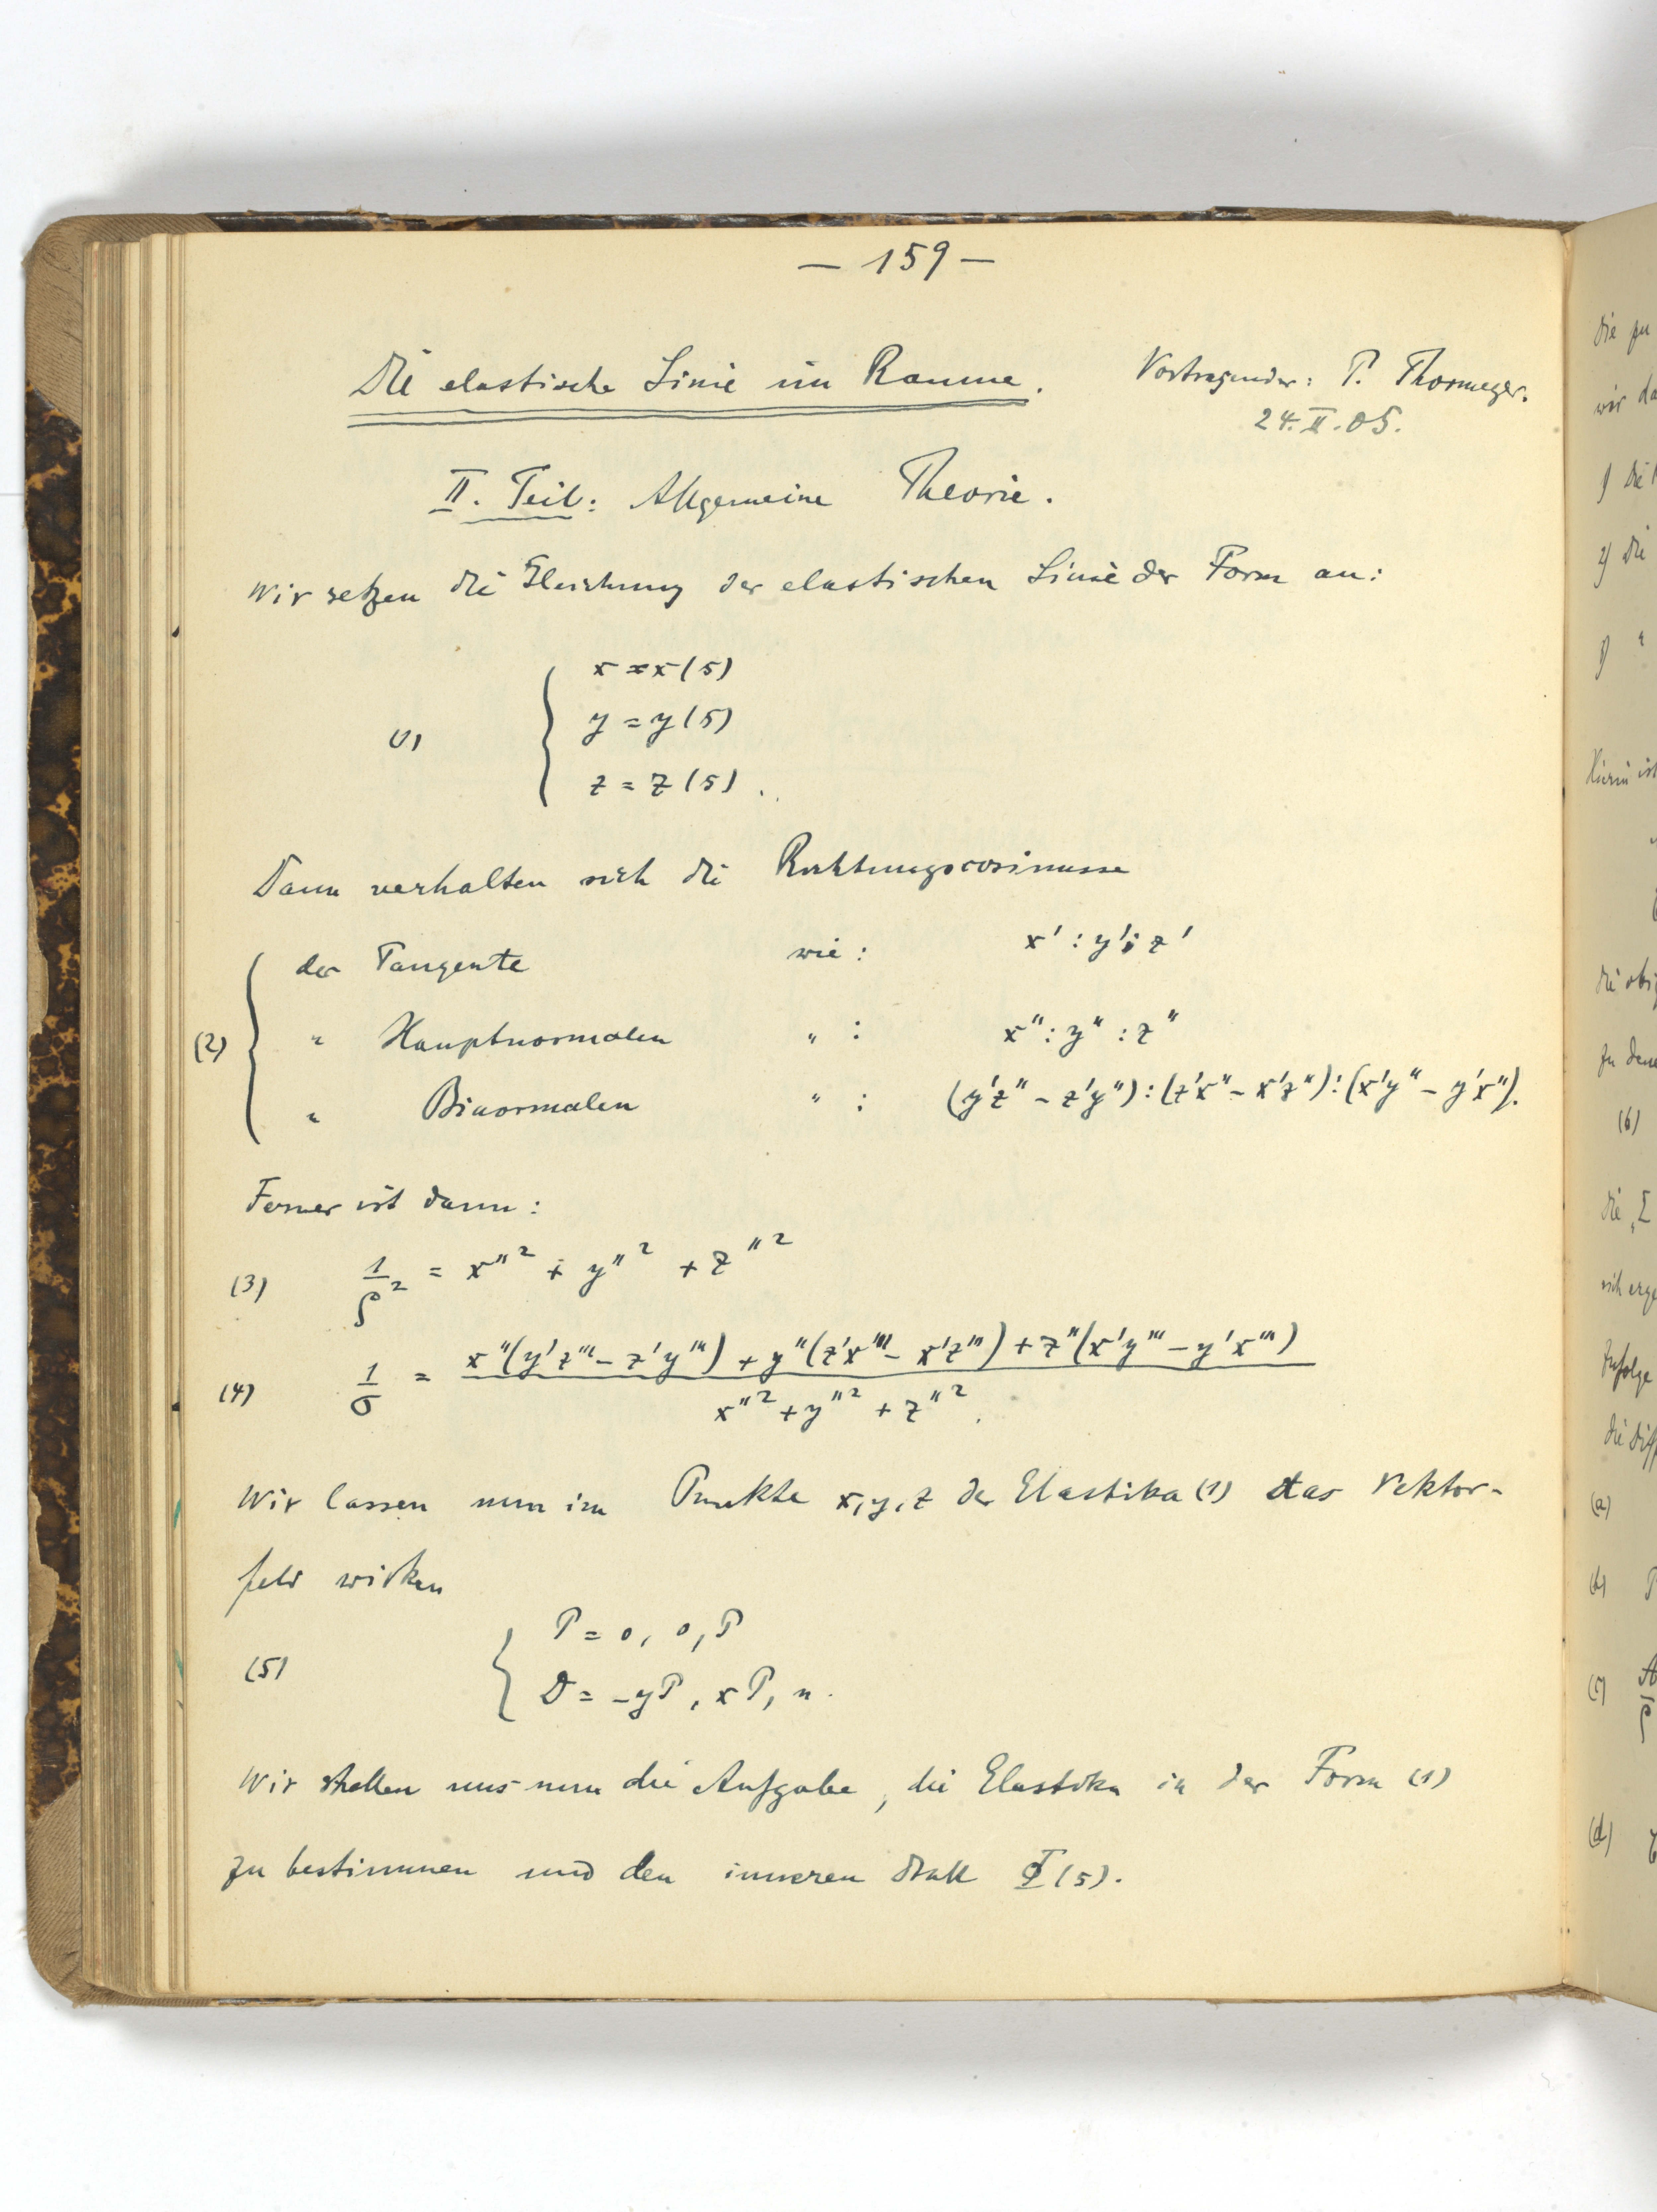 — 159 —
Die elastische Linie im Raume.
Vortragender: P. Thormeyer.
24.II.05.
II. Teil: Allgemeine Theorie.
Wir setzen die Gleichung der elastischen Linie der Form an:
x = x(s)
(1) y = y(s)
z = z(s).
Dann verhalten sich die Richtungscosinusse
der Tangente wie: x' : y' : z'
(2) " Hauptnormalen " : x" : y" : z"
" Binormalen " : (y'z" - z'y") : (z'x" - x'z") : (x'y" - y'x").
Ferner ist dann:
(3) 1/ρ² = x"² + y"² + z"²
(4) 1/σ = x"(y'z''' - z'y''') + y"(z'x''' - x'z''') + z"(x'y''' - y'x''')
x"² + y"² + z"².
Wir lassen nun im Punkte x, y, z der Elastika (1) das Vektor-
feld wirken
(5) P = 0, 0, P
D = -yP, xP, n.
Wir stellen uns nun die Aufgabe, die Elastika in der Form (1)
zu bestimmen und den inneren Drall (s).
die zu
wir da
1) die
2) die
3) "
Hierin ist
die obi
zu dene
(6)
die
sich erge
Zufolge
die Diff
(a)
(b) P
(c) A
ρ
(d)